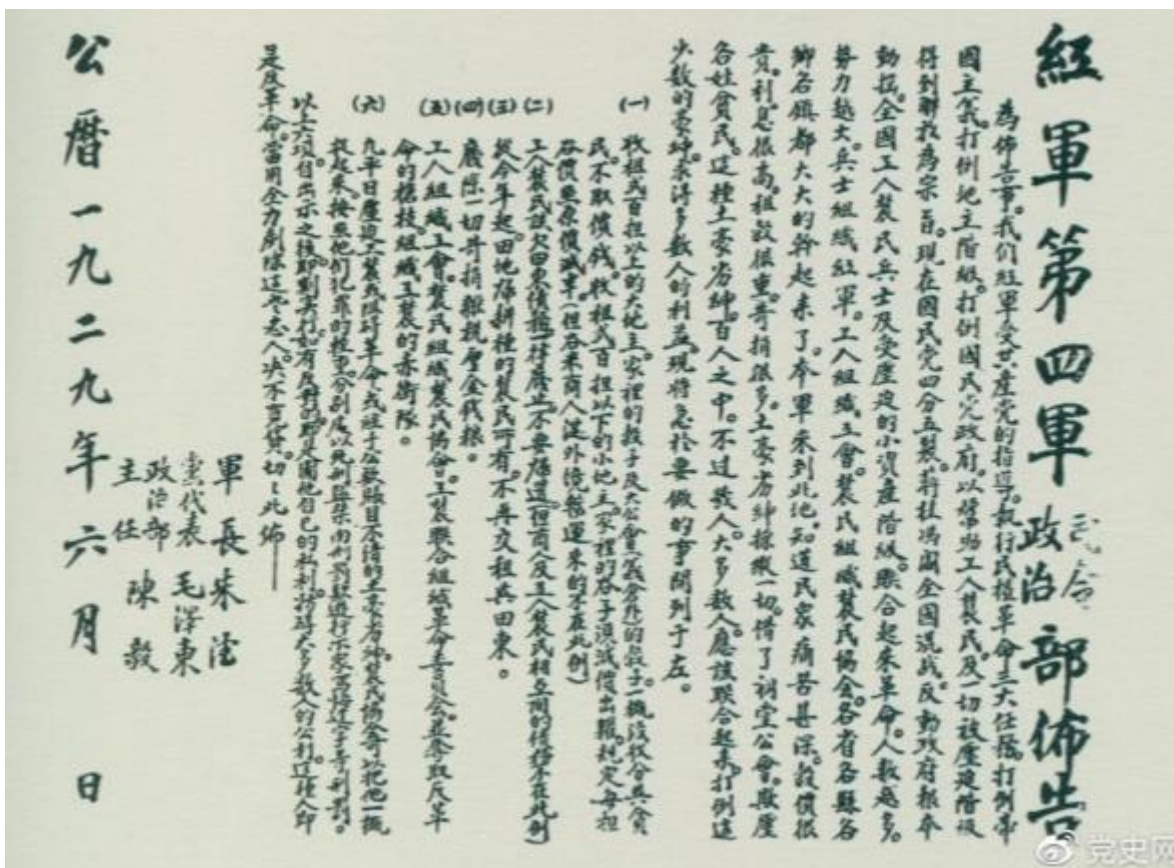 紅軍第四軍司令政治部佈告
為佈告事。我们紅軍受共產党的指導。執行民權革命三大任務。打倒帝
國主義。打倒地主階級。打倒國民党政府。以幫助工人農民及一切被壓迫階級
得到解放為宗旨。現在國民党四分五裂。蒋桂馮閻全國混战。反動政府根本
動摇。全國工人農民兵士及受壓迫的小資產階級。联合起来革命。人数越多。
势力越大。兵士組織紅軍。工人組織工會。農民組織農民協会。各省各縣各
鄉各鎮都大大的幹起来了。本軍来到此地。知道民家痛苦甚深。穀價很
贵。利息很高。租穀很重。苛捐很多。土豪劣紳操縱一切。借了祠堂公會。欺壓
各姓貧民。这種土豪劣紳。百人之中。不过数人。大多数人應該联合起来。打倒这
少数的豪紳。求得多数人的利益。現将急於要做的事開列于左。
(一)收租弍百担以上的大地主。家裡的穀子及公會義倉的穀子。一概没收分與貧
民。不取價錢。收租弍百担以下的小地主。家裡的谷子須減價出糶。規定每担
谷價照原價減半。(但谷米商人從外境糴運来的不在此例)
(二)工人農民該欠田東債務一律廢止。不要歸還。(但商人及工人農民相互間的債務不在此例)
(三)從今年起。田地歸耕種的農民所有。不再交租與田東。
(四)廢除一切苛捐雜税厘金錢粮。
(五)工人組織工會。農民組織農民協会。工農联合組織革命委員会。並奪取反革
命的槍枝。組織工農的赤衛隊。
(六)凡平日壓迫工農或阻碍革命或經手公款賬目不清的土豪劣紳。農民協会可以把他一概
捉起来。按照他们犯罪的輕重。分别處以
以上六項。自出示之後。即刻实行。如有反對的。即是圖他自己的私利。妨碍大多数人的公利。这種人即
是反革命。當用全力剷除这些忘人。决不寬貸。切切此佈
軍長朱德
黨代表毛澤東
政治部主任陳毅
公曆一九二九年六月 日
党史网